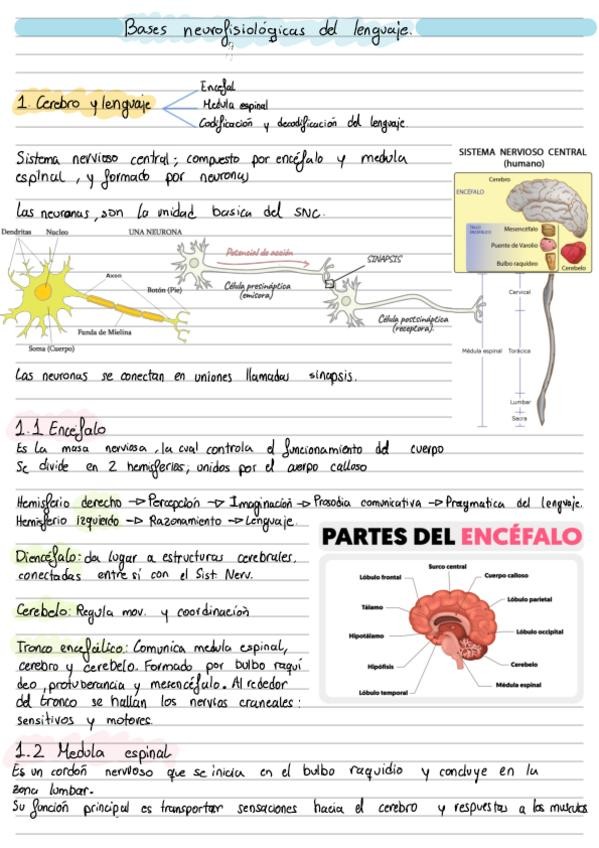 Bases neurofisiológicas del lenguaje.
1. Cerebro y lenguaje
Encéfal
Medula espinal
Codificación y decodificación del lenguaje.
Sistema nervioso central; compuesto por encéfalo y medula
espinal, y formado por neuronas
Las neuronas, son la unidad basica del SNC.
SISTEMA NERVIOSO CENTRAL
(humano)
Cerebro
ENCÉFALO
Mesencéfalo
Puente de Varolio
Bulbo raquídeo
Cerebelo
Cervical
Médula espinal
Torácica
Lumbar
Sacra
Dendritas
Nucleo
UNA NEURONA
Axon
Botón (Pie)
Funda de Mielina
Soma (Cuerpo)
Potencial de acción
SINAPSIS
Célula presináptica
(emisora)
Célula postsináptica
(receptora).
Las neuronas se conectan en uniones llamadas sinapsis.
1.1 Encéfalo
Es la masa nerviosa, la cual controla el funcionamiento del cuerpo
Se divide en 2 hemisferios; unidos por el cuerpo calloso
Hemisferio derecho -> Percepción -> Imaginación -> Prosodia comunicativa -> Pragmatica del lenguaje.
Hemisferio izquierdo -> Razonamiento -> Lenguaje.
PARTES DEL ENCÉFALO
Surco central
Lóbulo frontal
Cuerpo calloso
Tálamo
Lóbulo parietal
Hipotálamo
Lóbulo occipital
Hipófisis
Cerebelo
Lóbulo temporal
Médula espinal
Diencéfalo: da lugar a estructuras cerebrales,
conectadas entre sí con el Sist. Nerv.
Cerebelo: Regula mov. y coordinación
Tronco encefálico: Comunica medula espinal,
cerebro y cerebelo. Formado por bulbo raqui
deo, protuberancia y mesencéfalo. Alrededor
del tronco se hallan los nervios craneales:
sensitivos y motores.
1.2 Medula espinal
Es un cordón nervioso que se inicia en el bulbo raquidio y concluye en la
zona lumbar.
Su función principal es transportar sensaciones hacia el cerebro y respuestas a los musculos